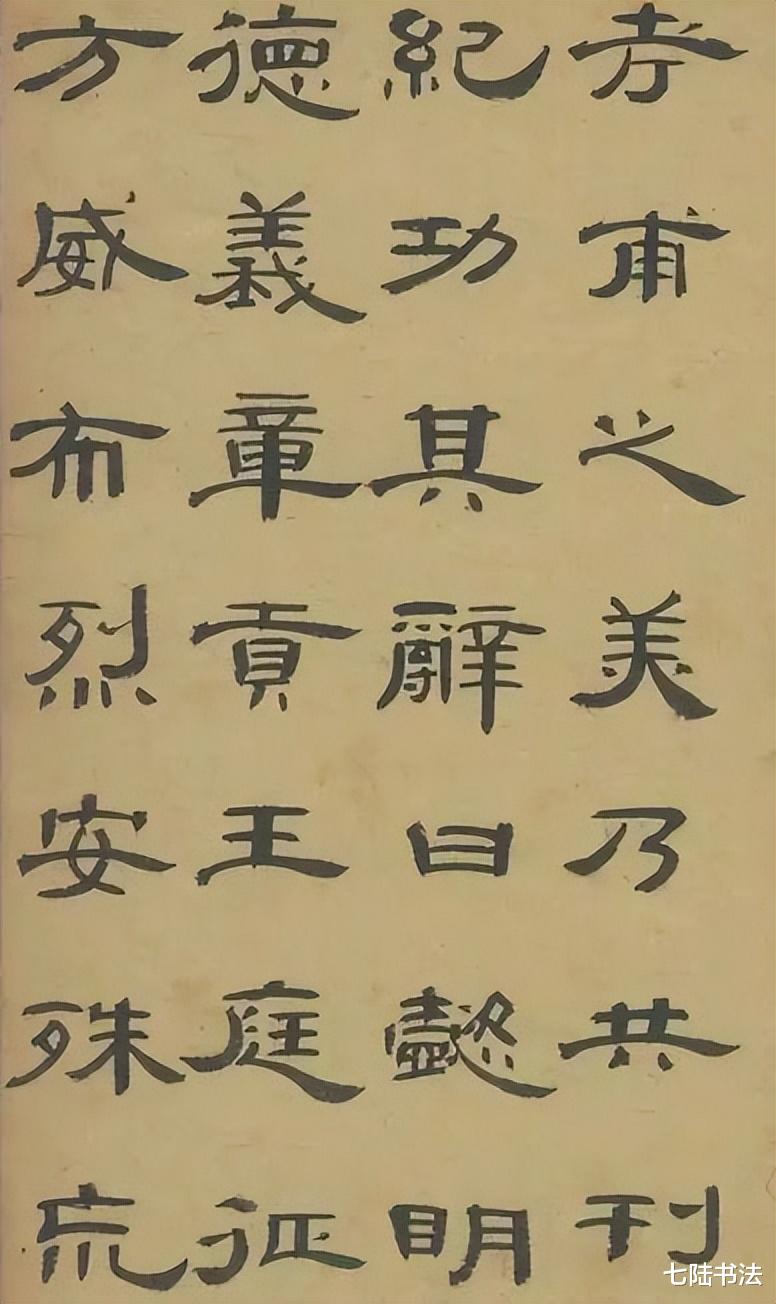 考甫之美乃共刊
紀功其辭曰懿明
德義章貢王庭征
方威布烈安殊荒
七陆书法